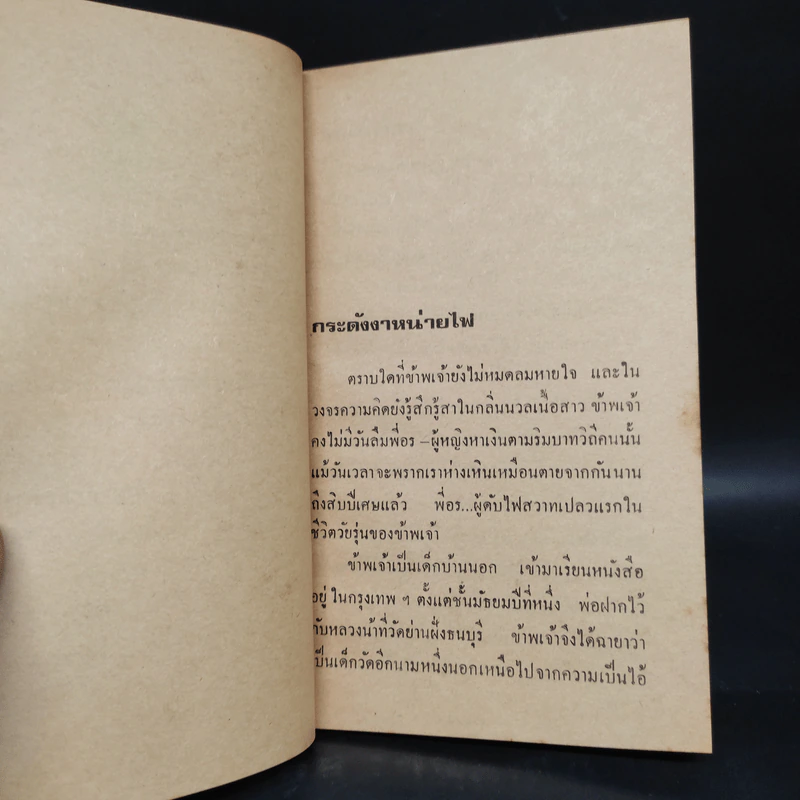 กระดังงาหน่ายไฟ
ตราบใดที่ข้าพเจ้ายังไม่หมดลมหายใจ และใน
วงจรความคิดยังรู้สึกรู้สาในกลิ่นนวลเนื้อสาว ข้าพเจ้า
คงไม่มีวันลืมพี่อร –ผู้หญิงหาเงินตามริมบาทวิถีคนนั้น
แม้วันเวลาจะพรากเราห่างเหินเหมือนตายจากกันนาน
ถึงสิบปีเศษแล้ว พี่อร...ผู้ดับไฟสวาทเปลวแรกใน
ชีวิตวัยรุ่นของข้าพเจ้า
ข้าพเจ้าเป็นเด็กบ้านนอก เข้ามาเรียนหนังสือ
อยู่ ในกรุงเทพ ฯ ตั้งแต่ชั้นมัธยมปีที่หนึ่ง พ่อฝากไว้
กับหลวงน้าที่วัดย่านฝั่งธนบุรี ข้าพเจ้าจึงได้ฉายาว่า
เป็นเด็กวัดอีกนามหนึ่งนอกเหนือไปจากความเป็นไอ้